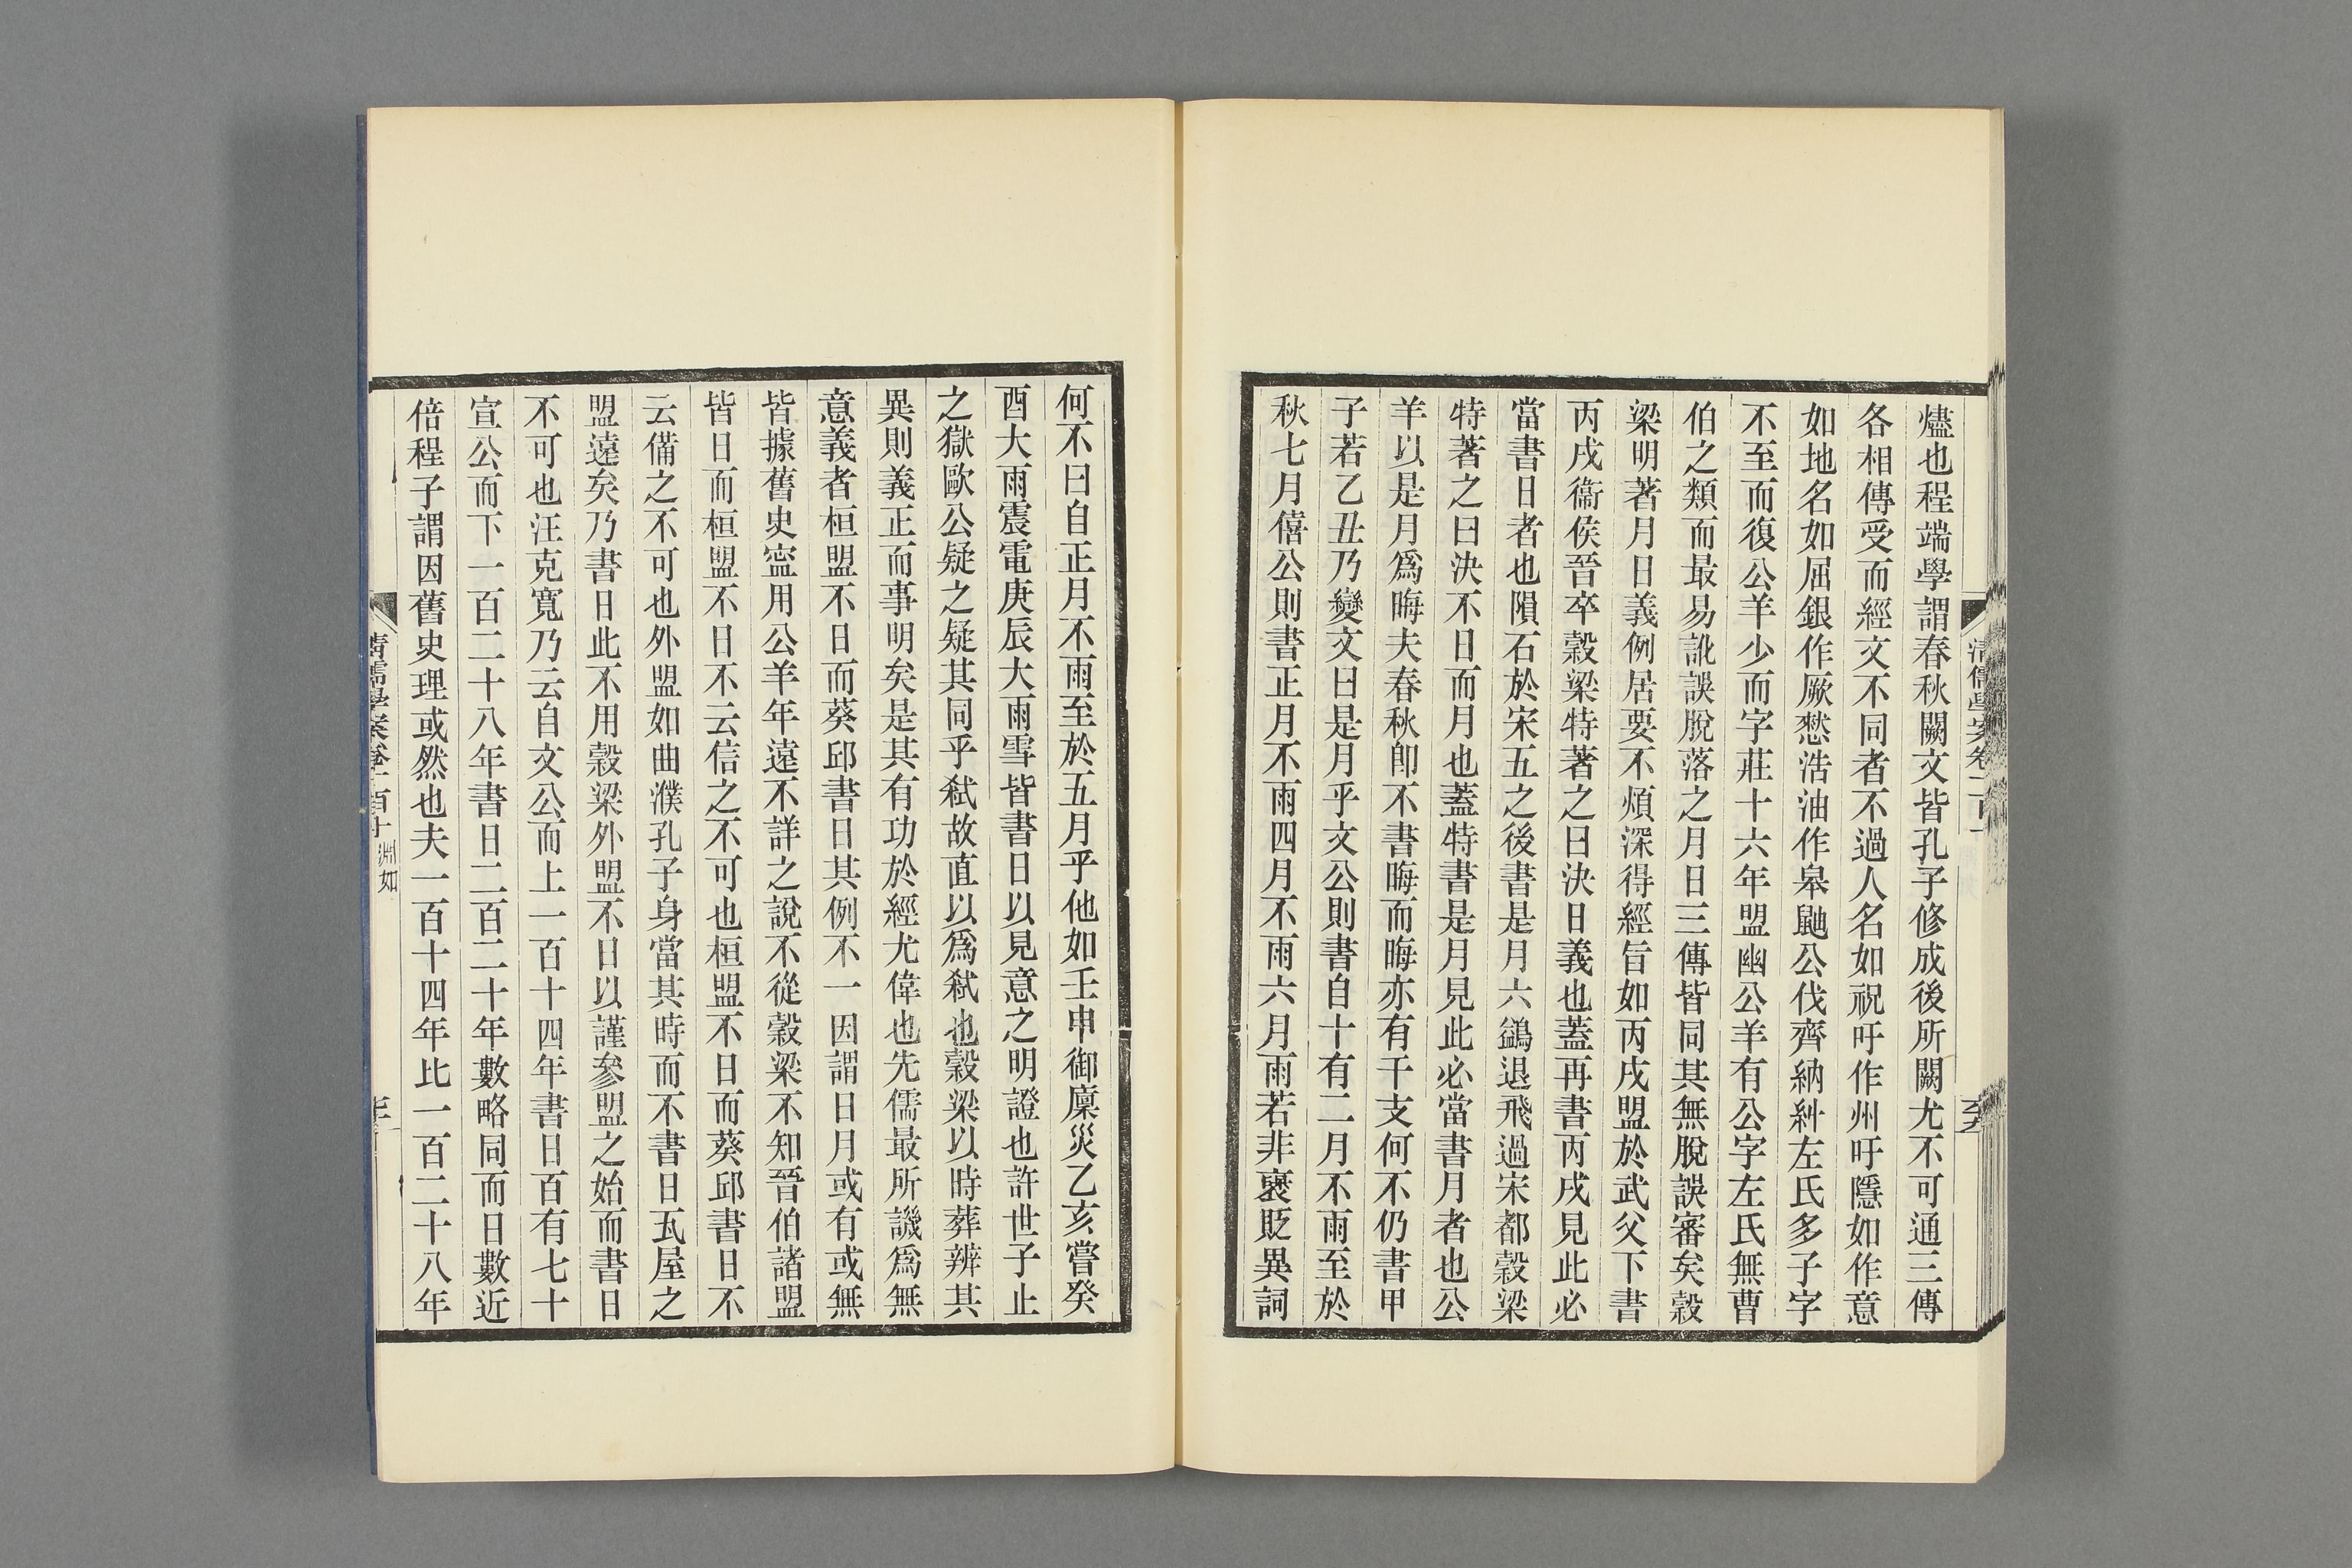 燼也程端學謂春秋闕文皆孔子修成後所闕尤不可通三傳
各相傳受而經文不同者不過人名如祝吁作州吁隱如作意
如地名如屈銀作厥憖浩油作皋鼬公伐齊納糾左氏多子字
不至而復公羊少而字莊十六年盟幽公羊有公字左氏無曹
伯之類而最易訛誤脫落之月日三傳皆同其無脫誤審矣穀
梁明著月日義例居要不煩深得經旨如丙戌盟於武父下書
丙戌衞侯晉卒穀梁特著之日決日義也蓋再書丙戌見此必
當書日者也隕石於宋五之後書是月六鷁退飛過宋都穀梁
特著之曰決不日而月也蓋特書是月見此必當書月者也公
羊以是月爲晦夫春秋卽不書晦而晦亦有干支何不仍書甲
子若乙丑乃變文曰是月乎文公則書自十有二月不雨至於
秋七月僖公則書正月不雨四月不雨六月雨若非褒貶異詞
何不曰自正月不雨至於五月乎他如壬申御廩災乙亥嘗癸
酉大雨震電庚辰大雨雪皆書日以見意之明證也許世子止
之獄歐公疑之疑其同乎弒故直以爲弒也穀梁以時葬辨其
異則義正而事明矣是其有功於經尤偉也先儒最所譏爲無
意義者桓盟不日而葵邱書日其例不一因謂日月或有或無
皆據舊史寍用公羊年遠不詳之說不從穀梁不知晉伯諸盟
皆日而桓盟不日不云信之不可也桓盟不日而葵邱書日不
云備之不可也外盟如曲濮孔子身當其時而不書日瓦屋之
盟遠矣乃書日此不用穀梁外盟不日以謹參盟之始而書日
不可也汪克寬乃云自文公而上一百十四年書日百有七十
宣公而下一百二十八年書日二百二十年數略同而日數近
倍程子謂因舊史理或然也夫一百十四年比一百二十八年
清儒學案卷一百十 淵如